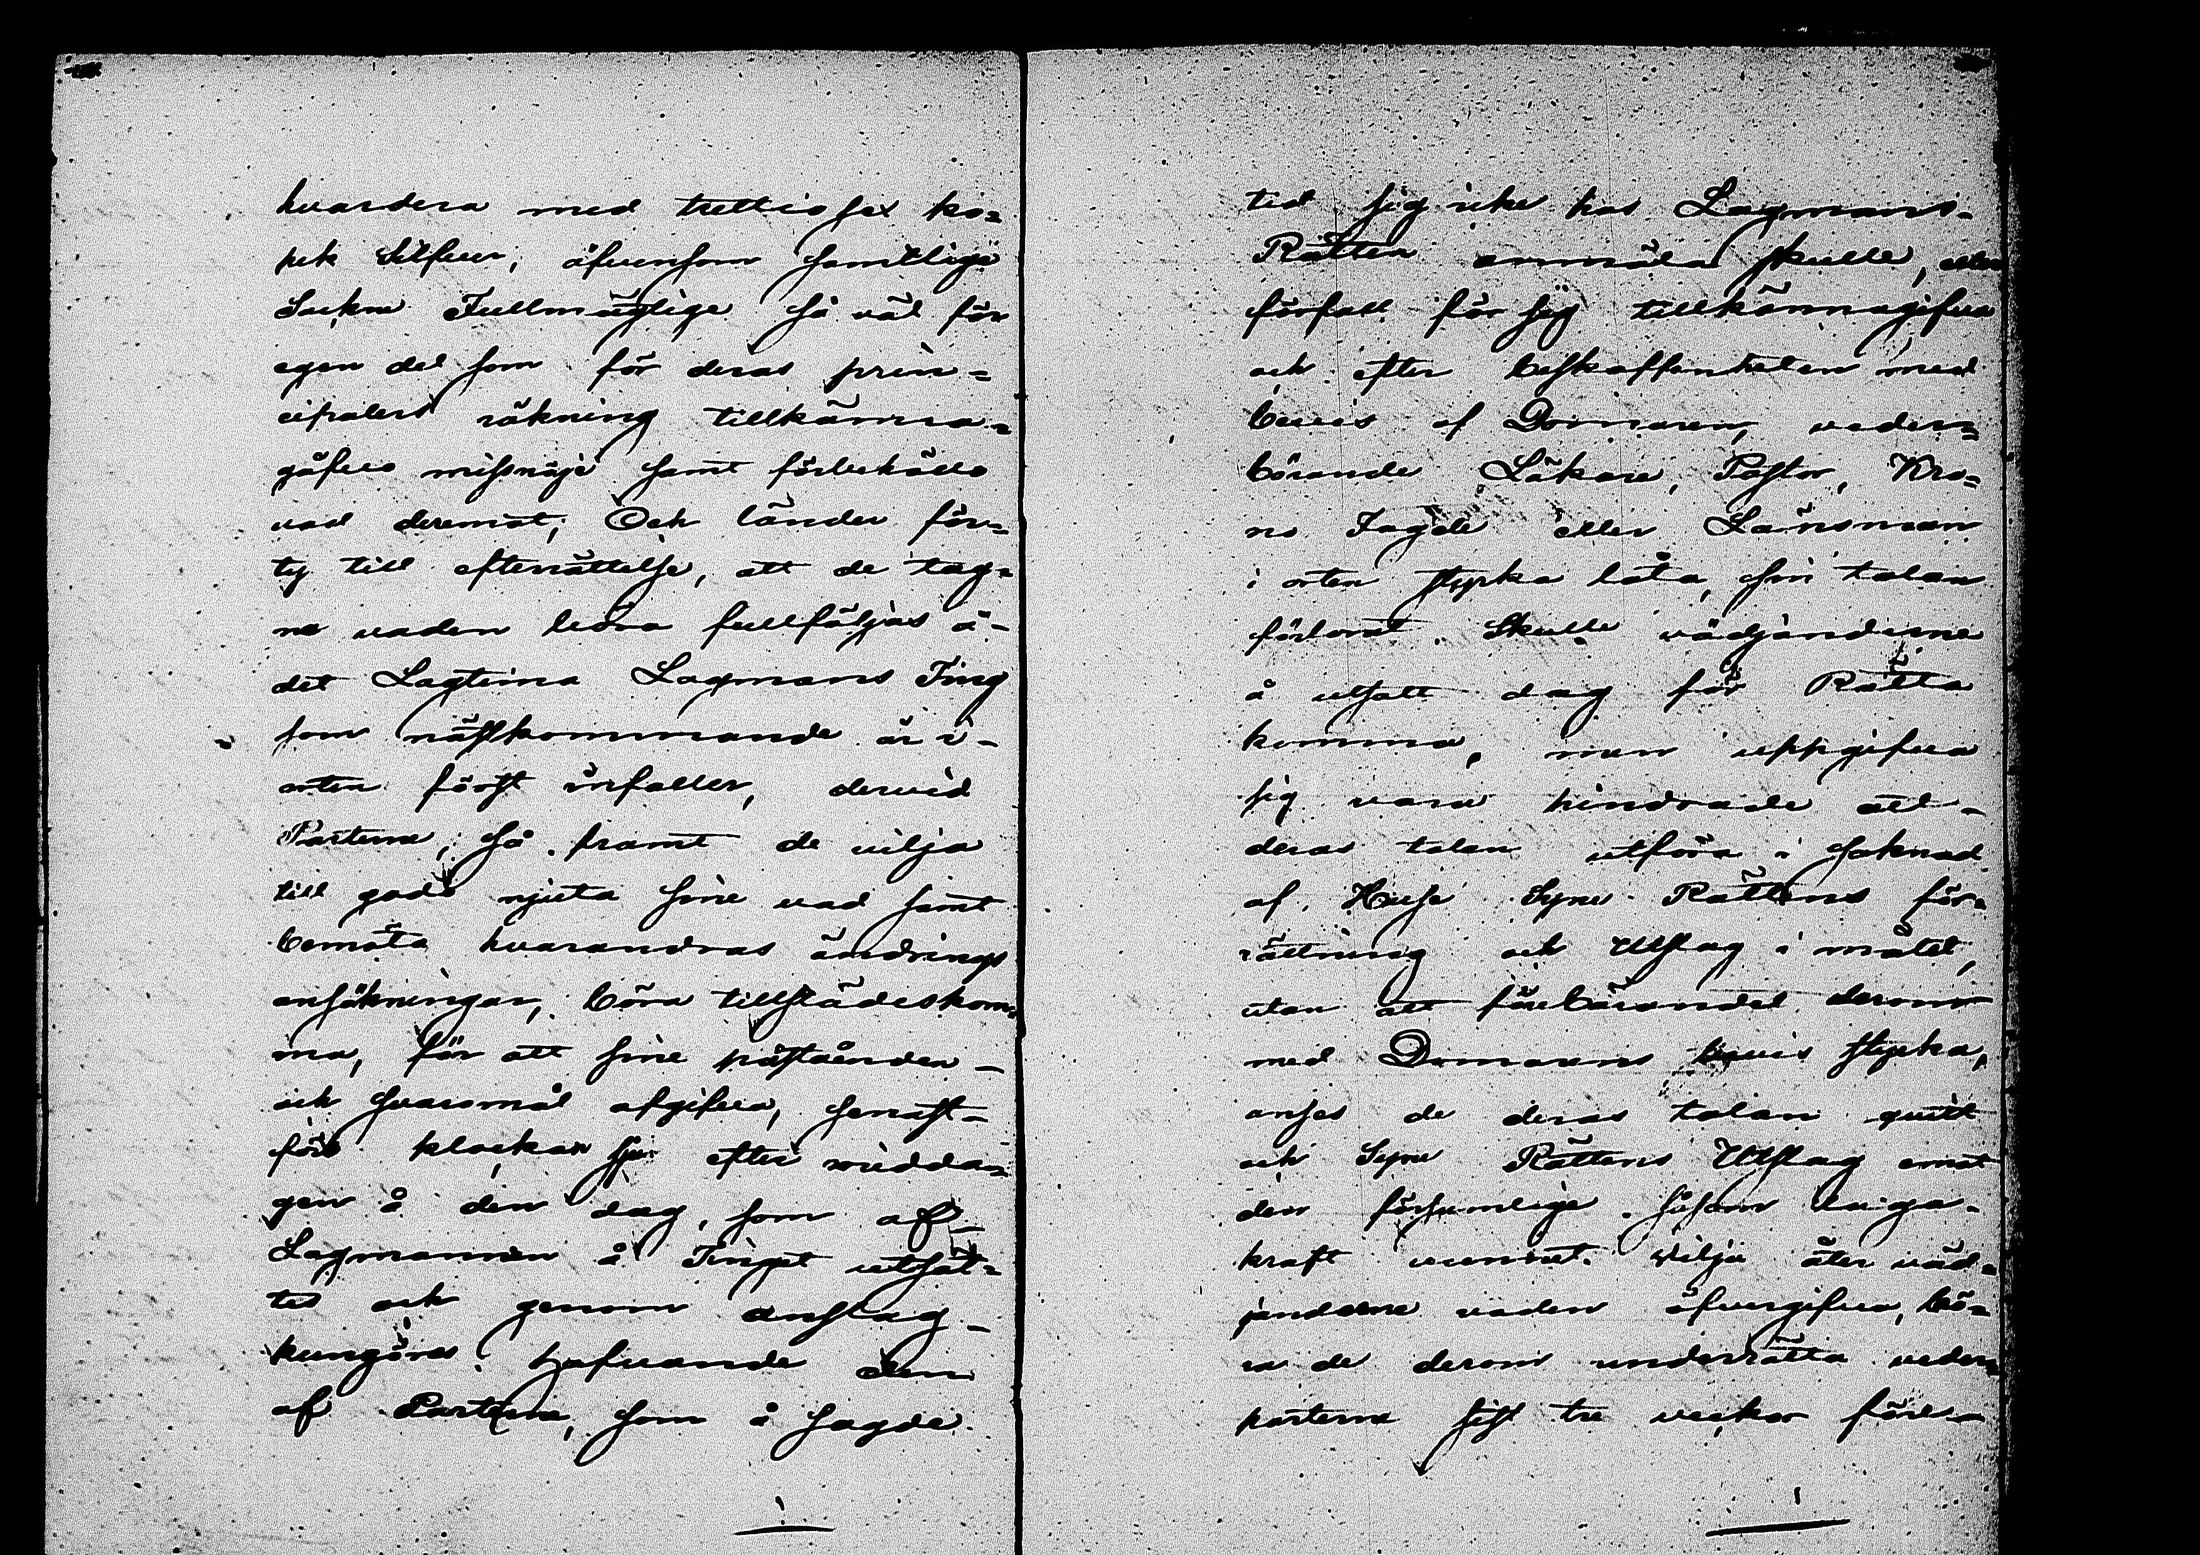 hvardera med trettiosex ko-
pek Silfver, äfvensom samtlige
Sockne Fullmägtige så väl för
egen del som för deras prin-
cipalers räkning tillkänna-
gåfvo missnöje samt förbehöllo
vad deremot; Och länder för-
ty till efterrättelse, att de tag-
na vaden böra fullföljas å-
det Lagtima Lagmans Ting
som nästkommande år i-
orten först infaller, dervid
Parterna, så framt de vilja
till godo njuta sine vad samt
bemöta hvarandras ändrings
ansökningar, böra tillstädeskom-
ma, för att sine påståenden-
och svaromål afgifva, senast-
före klockan sju efter midda-
gen å den dag, som af-
Lagmannen å Tinget utsät-
tes och genom anslag-
kungöres. Hafvande den
af Parterna, som å sagde
tid sig icke hos Lagmans-
Rätten anmäla skulle, eller
förfall för sig tillkännagifva
och efter beskaffenheten med
bevis af Domaren, veder-
börande Läkare, Pastor, Kro-
no Fogde eller Länsman
i orten styrka låta, sin talan
förlorat. Skulle vädjanderne
å utsatt dag för Rätta
komma, men uppgifva
sig vara hindrade att-
deras talan utföra i saknad
af Huse Syne Rättens för-
rättning och Utslag i målet,
utan att förebärandet derom
med Domarens bevis styrka,
anses de deras talan qvitt
och Syne Rättens Utslag emot
den försumlige såsom laga-
kraft vunnit. Vilja åter väd-
janderne vaden öfvergifva, bö-
ra de derom underrätta veder-
parterne sist tre veckor före-